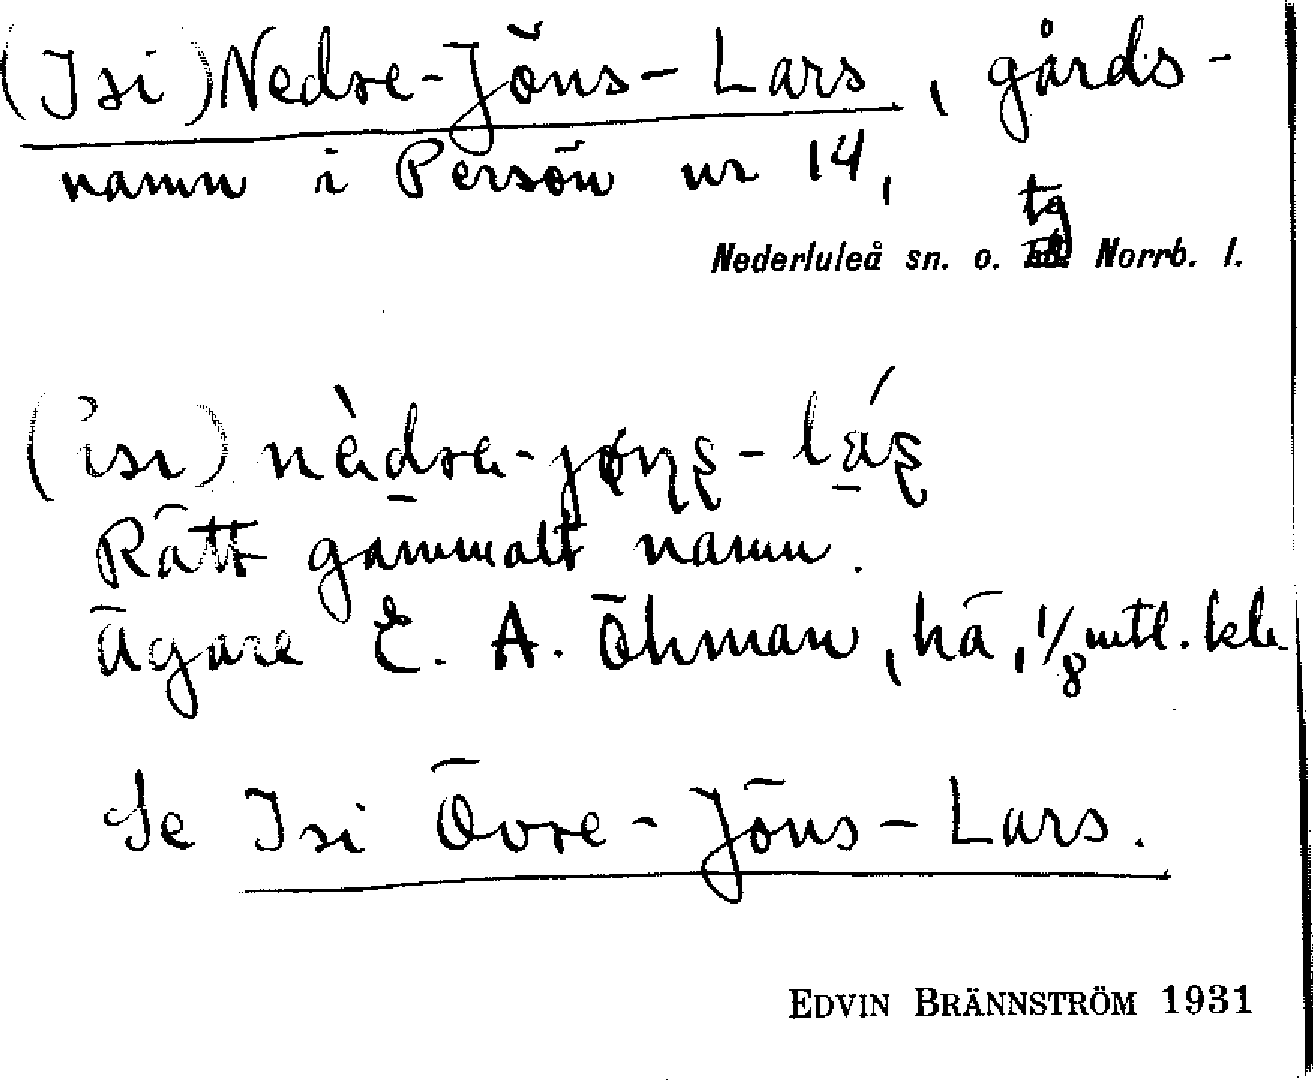 (Isi) Nedre-Jöns-Lars, gårds-
namn i Persön nr 14,
tg
Nederluleå sn. o. Norrb. l.
(isı)
Rätt gammalt namn.
Ägare E. A. Öhman, hä, 1/8 mtl. kle
Se Isi Övre-Jöns-Lars.
EDVIN BRÄNNSTRÖM 1931